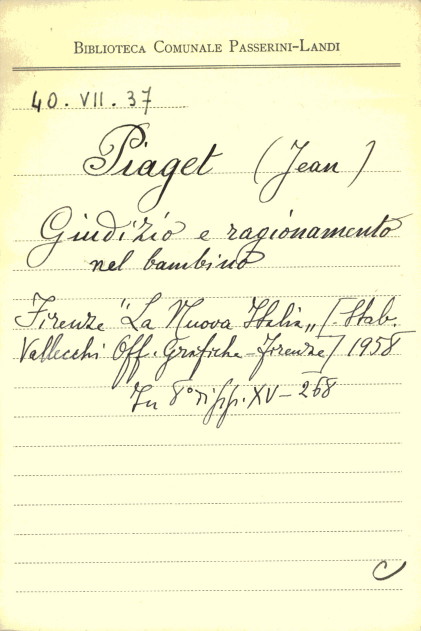 BIBLIOTECA COMUNALE PASSERINI-LANDI
40. VII. 37
Piaget (Jean)
Giudizio e ragionamento
nel bambino
Firenze "La Nuova Italia„ [. Stab.
Vallecchi Off. Grafiche - Firenze] 1958
In 8° di pp. XV - 268
C